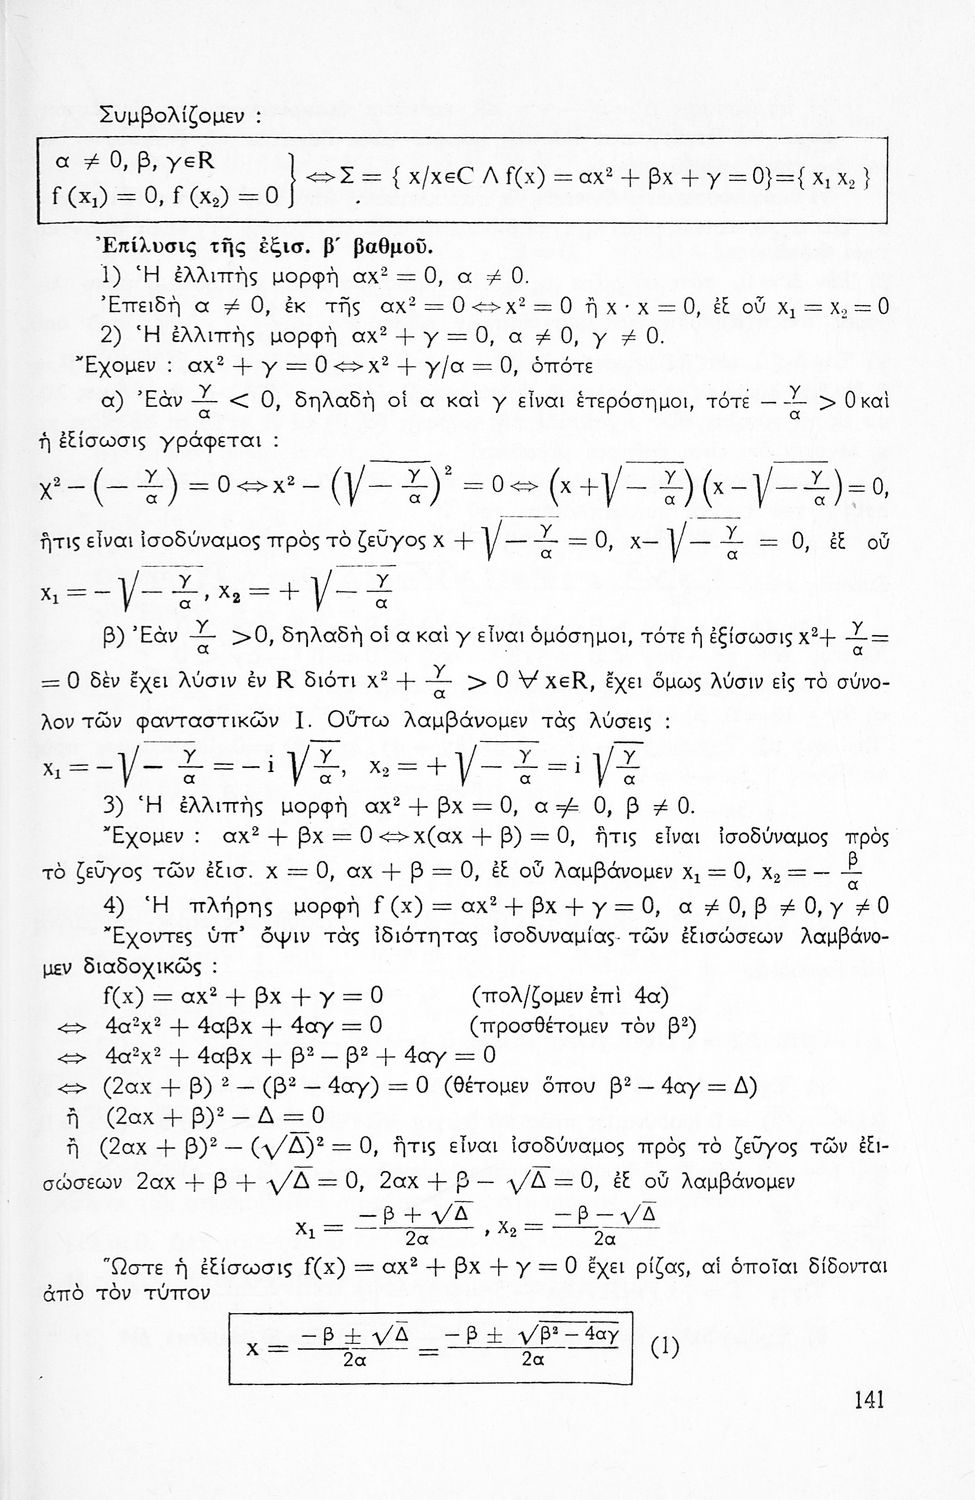 Συμβολίζομεν :
α ≠ 0, β, γεR
f (x₁) = 0, f (x₂) = 0 } ⇔ Σ = { x/xεC Λ f(x) = αx² + βx + γ = 0}={ x₁ x₂ }
Ἐπίλυσις τῆς ἐξισ. β′ βαθμοῦ.
1) Ἡ ἐλλιπὴς μορφὴ αx² = 0, α ≠ 0.
Ἐπειδὴ α ≠ 0, ἐκ τῆς αx² = 0 ⇔ x² = 0 ἢ x · x = 0, ἐξ οὗ x₁ = x₂ = 0
2) Ἡ ἐλλιπὴς μορφὴ αx² + γ = 0, α ≠ 0, γ ≠ 0.
Ἔχομεν : αx² + γ = 0 ⇔ x² + γ/α = 0, ὁπότε
α) Ἐὰν γ/α < 0, δηλαδὴ οἱ α καὶ γ εἶναι ἑτερόσημοι, τότε − γ/α > 0 καὶ
ἡ ἐξίσωσις γράφεται :
x² − (− γ/α) = 0 ⇔ x² − (√(− γ/α))² = 0 ⇔ (x + √(− γ/α)) (x − √(− γ/α)) = 0,
ἥτις εἶναι ἰσοδύναμος πρὸς τὸ ζεῦγος x + √(− γ/α) = 0, x− √(− γ/α) = 0, ἐξ οὗ
x₁ = − √(− γ/α), x₂ = + √(− γ/α)
β) Ἐὰν γ/α >0, δηλαδὴ οἱ α καὶ γ εἶναι ὁμόσημοι, τότε ἡ ἐξίσωσις x²+ γ/α =
= 0 δὲν ἔχει λύσιν ἐν R διότι x² + γ/α > 0 ∀ xεR, ἔχει ὅμως λύσιν εἰς τὸ σύνο-
λον τῶν φανταστικῶν I. Οὕτω λαμβάνομεν τὰς λύσεις :
x₁ = −√(− γ/α) = − i √(γ/α), x₂ = + √(− γ/α) = i √(γ/α)
3) Ἡ ἐλλιπὴς μορφὴ αx² + βx = 0, α ≠ 0, β ≠ 0.
Ἔχομεν : αx² + βx = 0 ⇔ x(αx + β) = 0, ἥτις εἶναι ἰσοδύναμος πρὸς
τὸ ζεῦγος τῶν ἐξισ. x = 0, αx + β = 0, ἐξ οὗ λαμβάνομεν x₁ = 0, x₂ = − β/α
4) Ἡ πλήρης μορφὴ f (x) = αx² + βx + γ = 0, α ≠ 0, β ≠ 0, γ ≠ 0
Ἔχοντες ὑπ' ὄψιν τὰς ἰδιότητας ἰσοδυναμίας τῶν ἐξισώσεων λαμβάνο-
μεν διαδοχικῶς :
f(x) = αx² + βx + γ = 0 (πολ/ζομεν ἐπὶ 4α)
⇔ 4α²x² + 4αβx + 4αγ = 0 (προσθέτομεν τὸν β²)
⇔ 4α²x² + 4αβx + β² − β² + 4αγ = 0
⇔ (2αx + β) ² − (β² − 4αγ) = 0 (θέτομεν ὅπου β² − 4αγ = Δ)
ἢ (2αx + β)² − Δ = 0
ἢ (2αx + β)² − (√Δ)² = 0, ἥτις εἶναι ἰσοδύναμος πρὸς τὸ ζεῦγος τῶν ἐξι-
σώσεων 2αx + β + √Δ = 0, 2αx + β − √Δ = 0, ἐξ οὗ λαμβάνομεν
x₁ = (−β + √Δ)/2α , x₂ = (−β − √Δ)/2α
Ὥστε ἡ ἐξίσωσις f(x) = αx² + βx + γ = 0 ἔχει ρίζας, αἱ ὁποῖαι δίδονται
ἀπὸ τὸν τύπον
x = (−β ± √Δ)/2α = (−β ± √(β² − 4αγ))/2α (1)
141